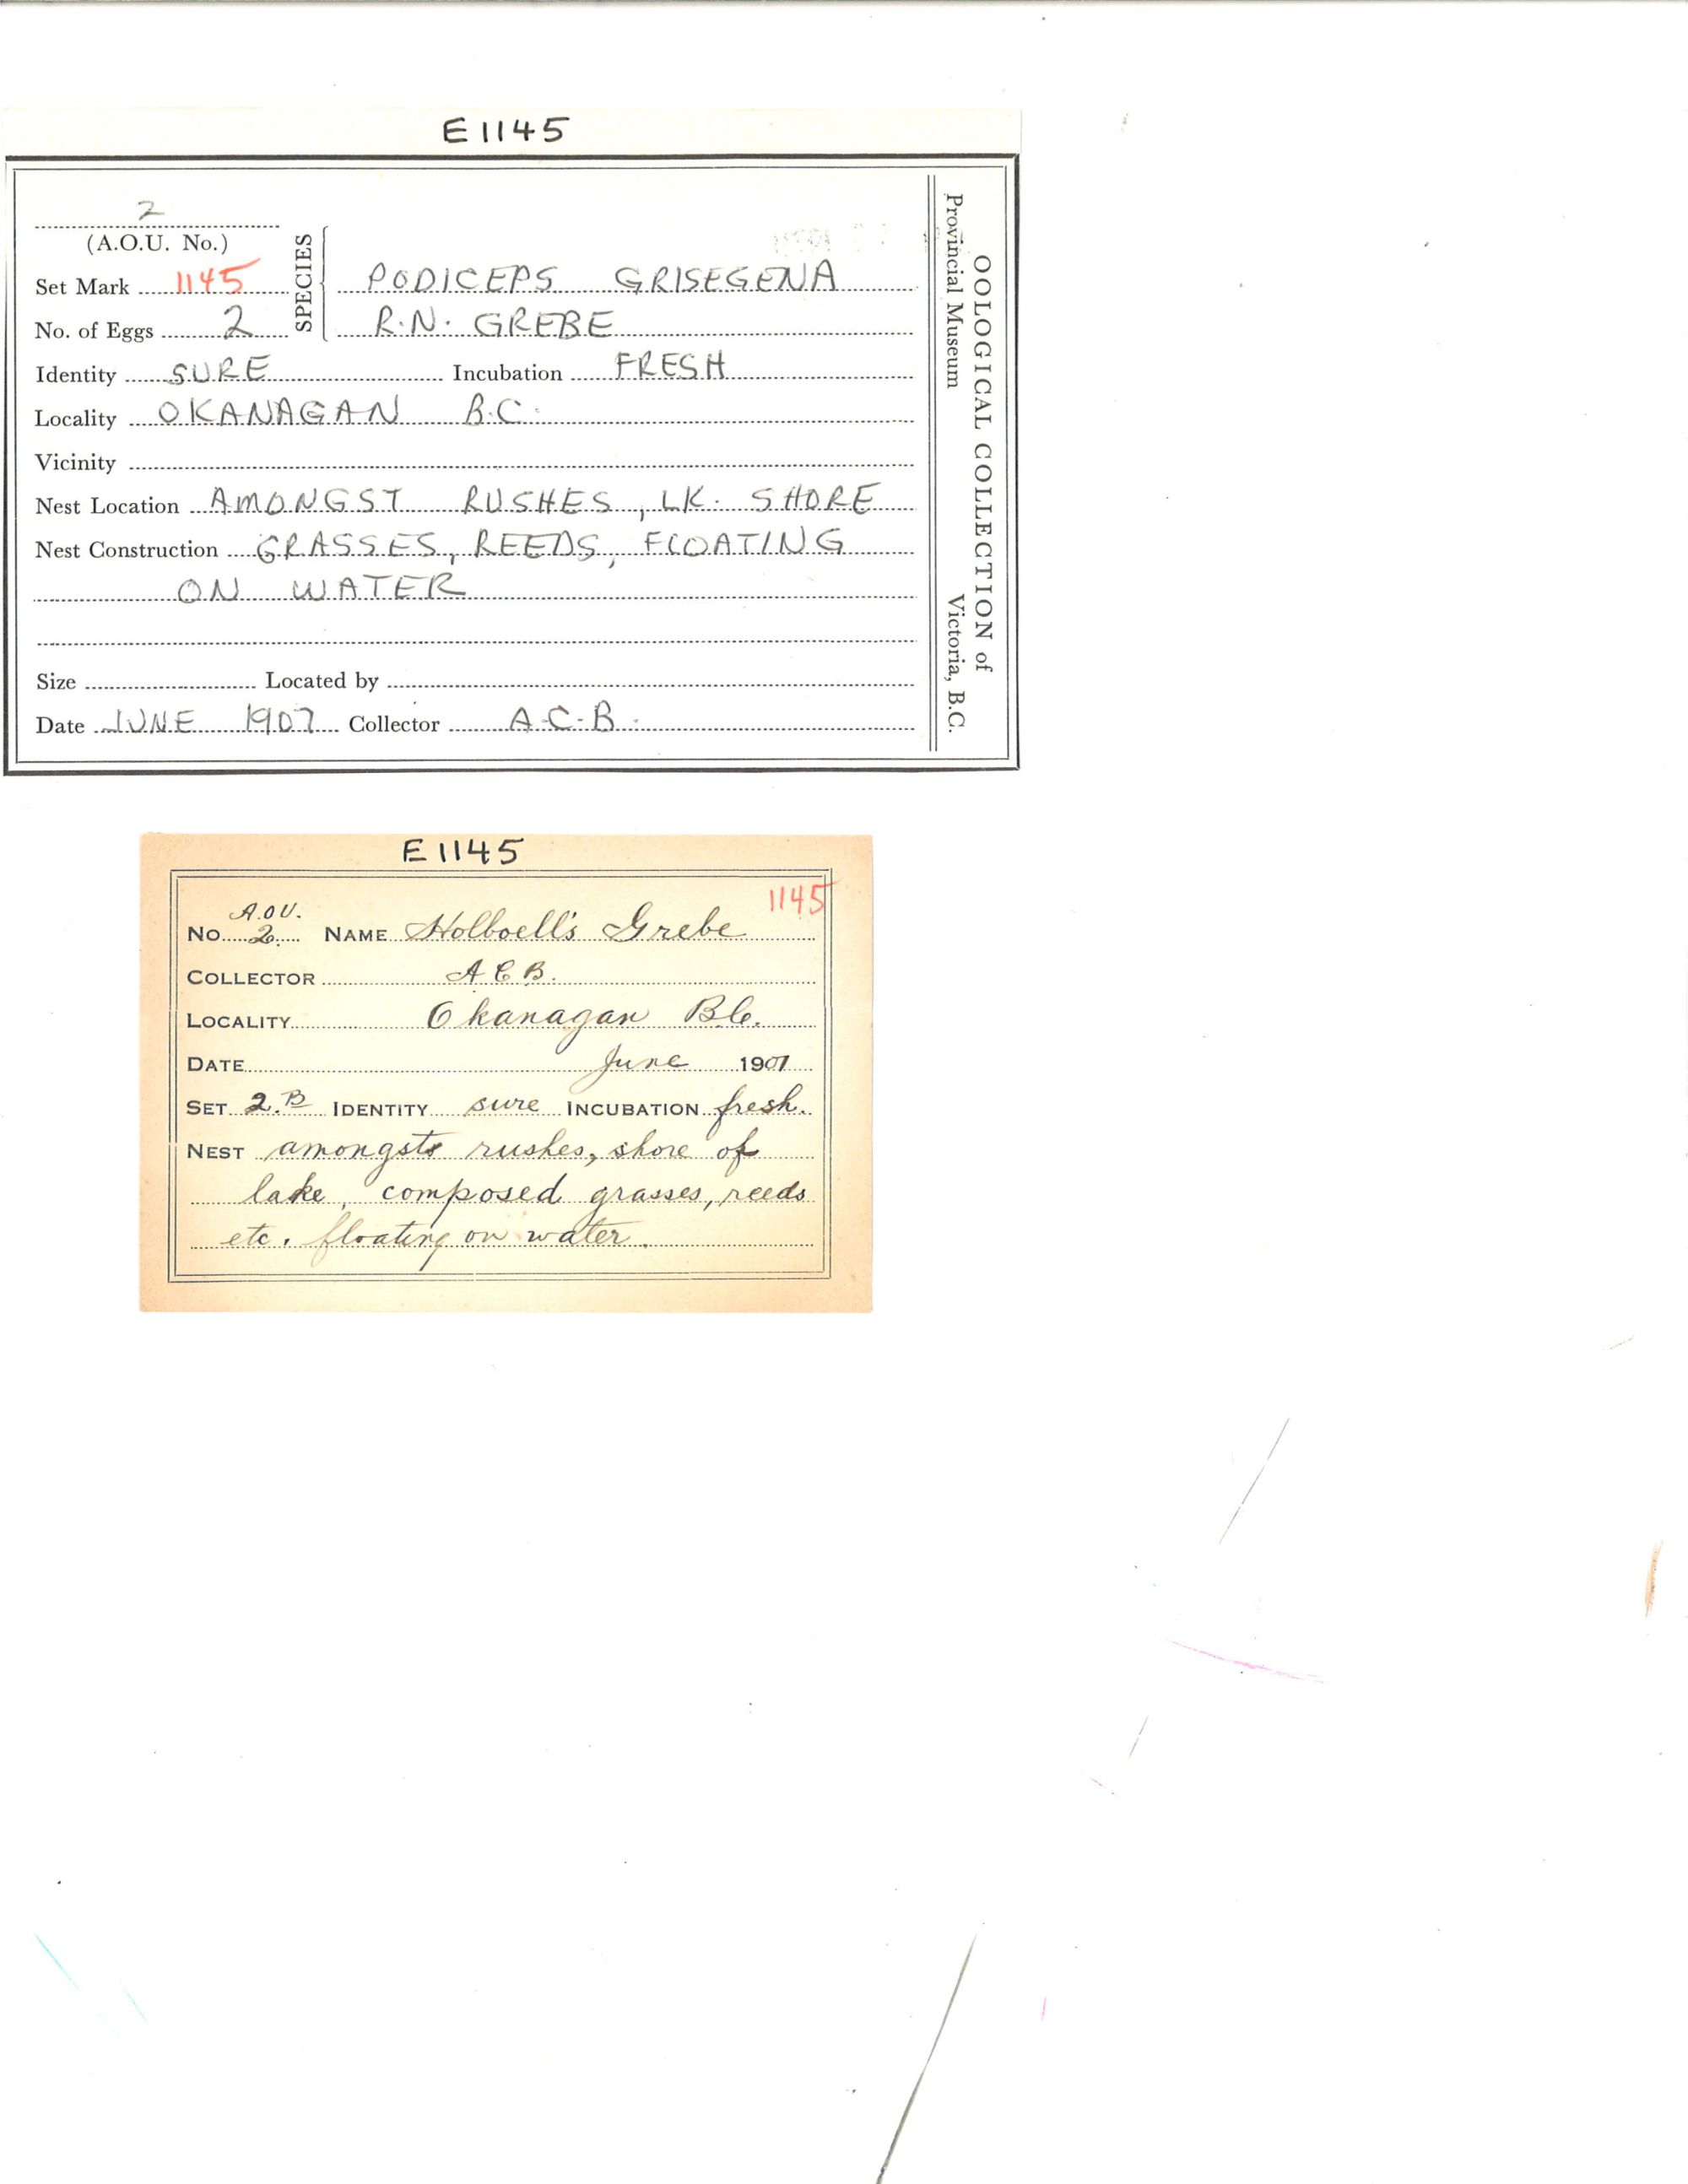 E1145
2
(A.O.U. No.)
Set Mark 1145
No. of Eggs 2
SPECIES
PODICEPS GRISEGENA
R.N. GREBE
Identity SURE Incubation FRESH
Locality OKANAGAN B.C.
Vicinity
Nest Location AMONGST RUSHES, LK. SHORE
Nest Construction GRASSES, REEDS, FLOATING
ON WATER
Size Located by
Date JUNE 1907 Collector A.C.B.
OOLOGICAL COLLECTION of
Provincial Museum Victoria, B.C.
E1145
1145
A.O.U.
No. 2. NAME Holboell's Grebe
COLLECTOR A C B.
LOCALITY Okanagan B.C.
DATE June 1907
SET 2.B IDENTITY sure INCUBATION fresh.
NEST amongst rushes, shore of
lake, composed grasses, reeds
etc. floating on water.